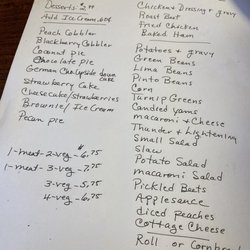 Desserts: 2.99
Add Ice Cream .60¢
Peach Cobbler
Blackberry Cobbler
Coconut pie
Chocolate pie
German Choc/upside down cake
Strawberry Cake
Cheesecake/strawberries
Brownie/Ice Cream
Pecan pie
1-meat-2-veg-6.75
1-meat-3-veg-7.75
3-veg-5.75
4-veg-6.75
Chicken Dressing & gravy
Roast Beef
Fried Chicken
Baked Ham
Potatoes & gravy
Green Beans
Lima Beans
Pinto Beans
Corn
Turnip Greens
Candied yams
macaroni & Cheese
Thunder & Lightening
Small Salad
Slaw
Potato Salad
macaroni Salad
Pickled Beets
Applesauce
diced peaches
Cottage Cheese
Roll or Cornbread